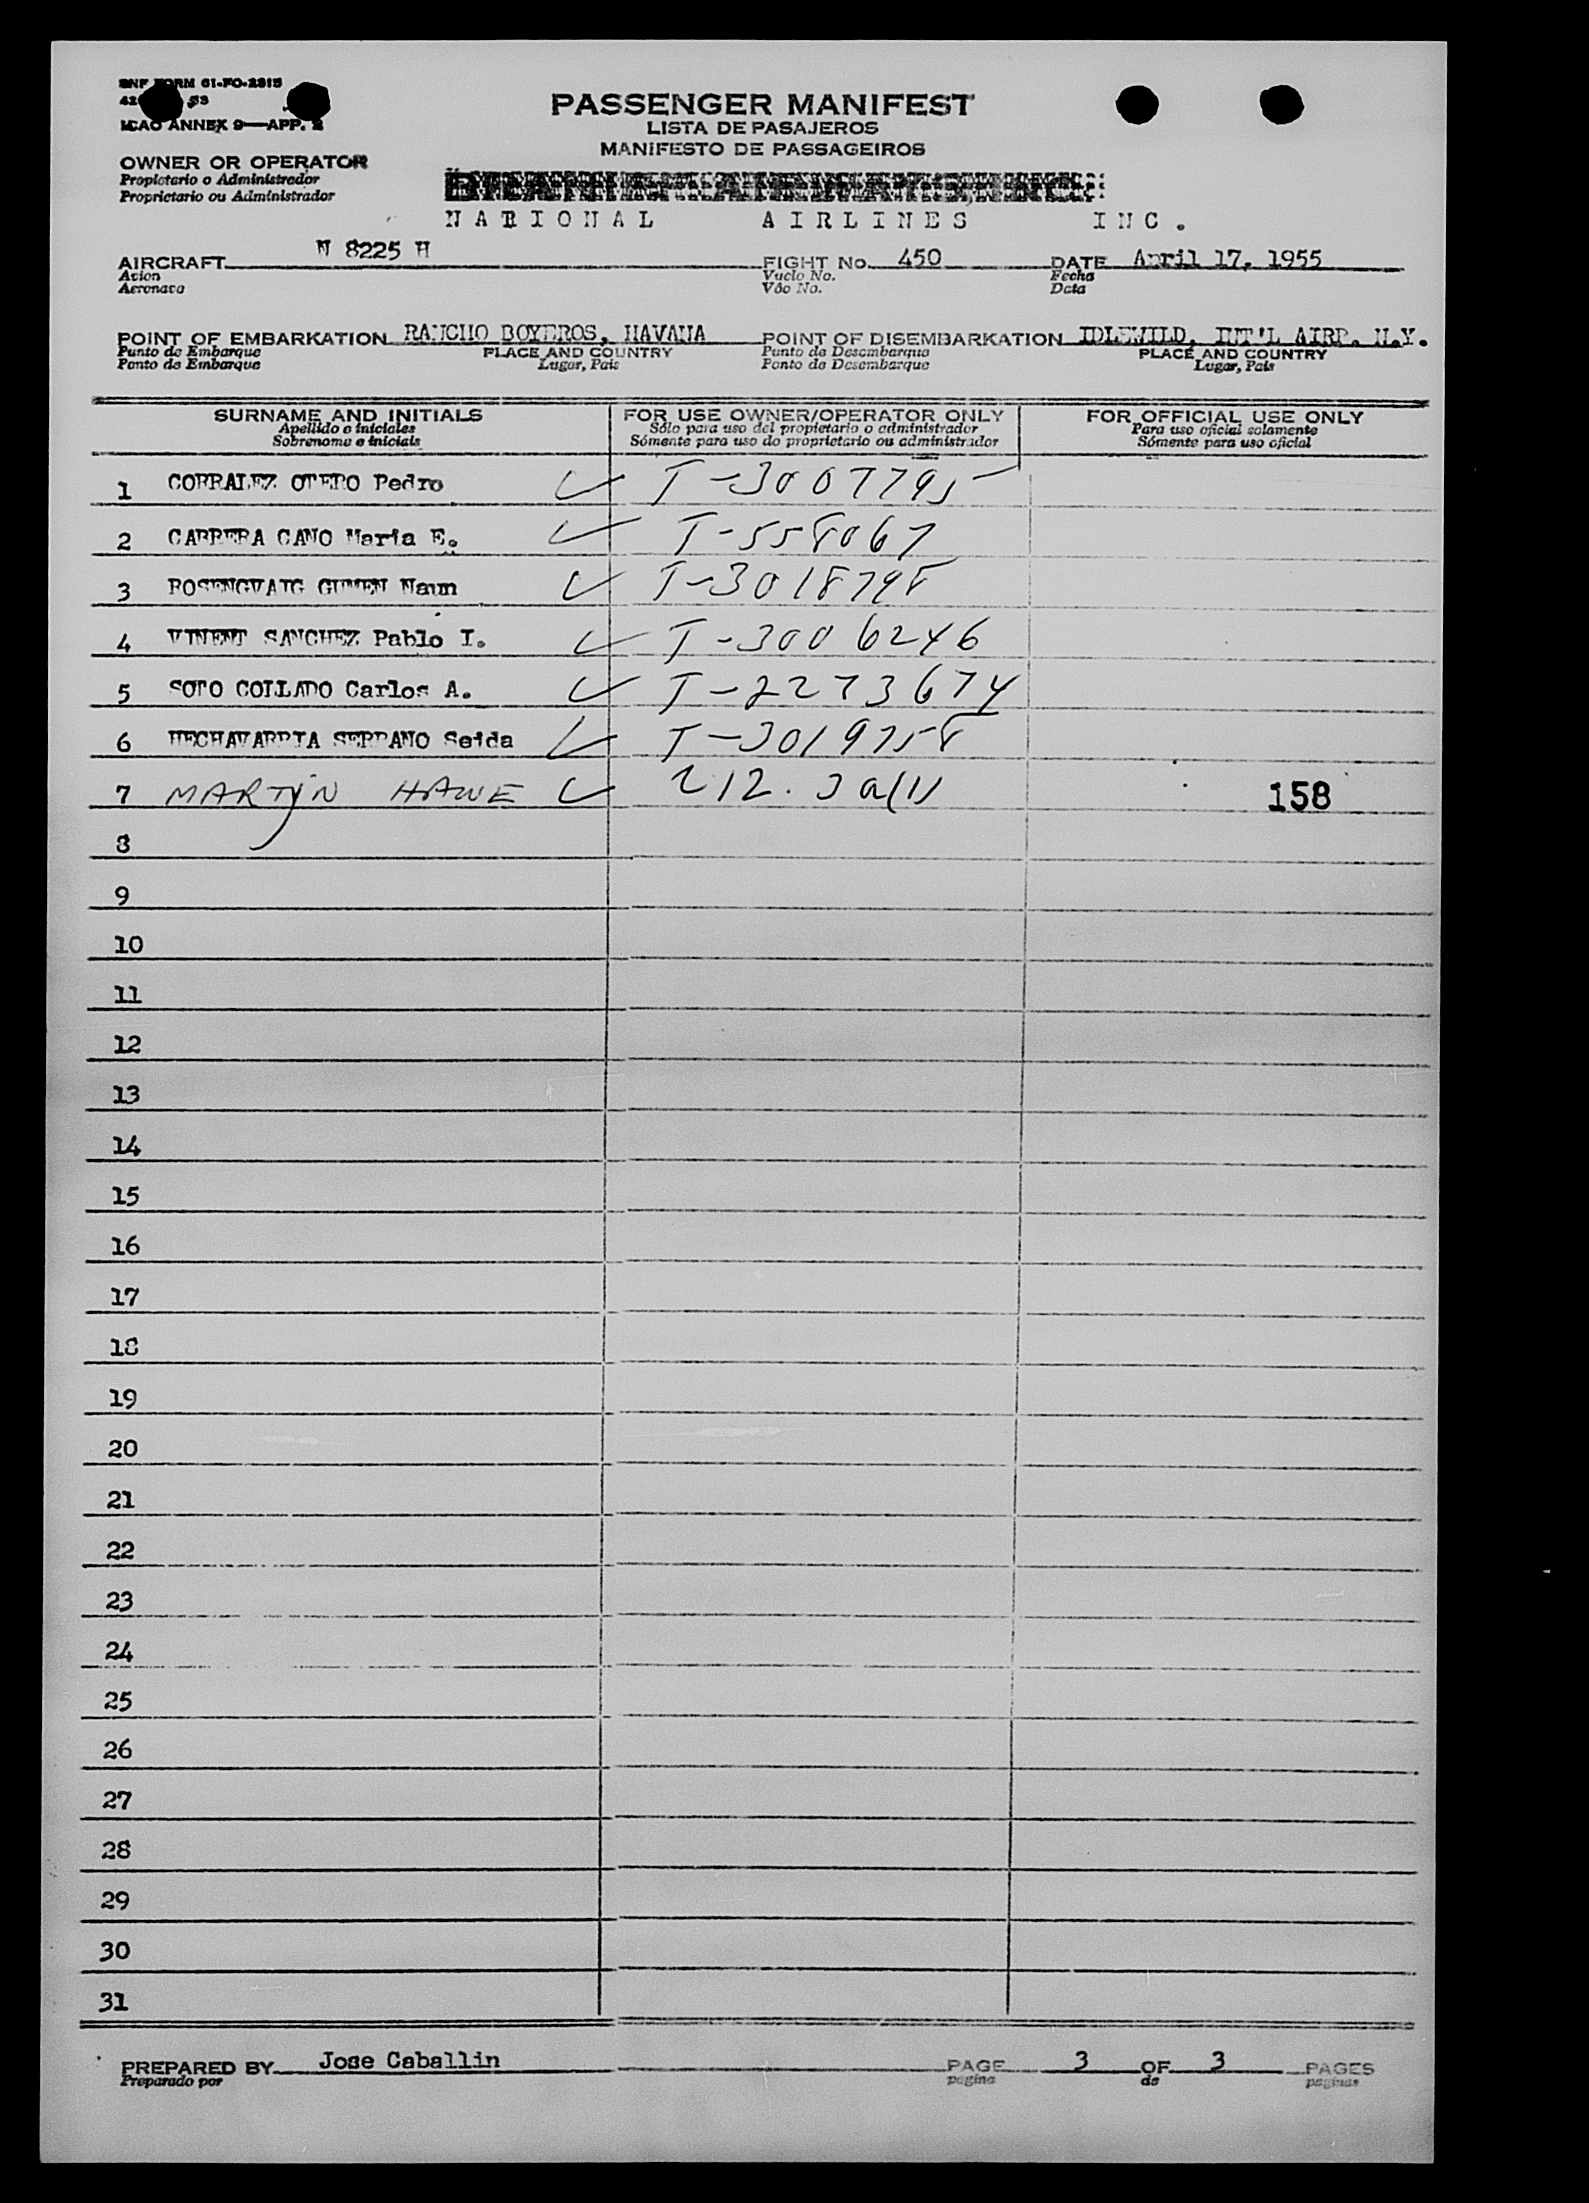 BNF FORM 61-FO-2315
ICAO ANNEX 9—APP. 2
PASSENGER MANIFEST
LISTA DE PASAJEROS
MANIFESTO DE PASSAGEIROS
OWNER OR OPERATOR
Propietario o Administrador
Proprietario ou Administrador
NATIONAL AIRLINES INC.
AIRCRAFT N 8225 H FIGHT No. 450 DATE April 17, 1955
Avion Vuelo No. Fecha
Aeronave Vôo No. Data
POINT OF EMBARKATION RANCHO BOYEROS, HAVANA POINT OF DISEMBARKATION IDLEWILD, INT'L AIRP. N.Y.
Punto de Embarque PLACE AND COUNTRY Punto de Desembarque PLACE AND COUNTRY
Ponto de Embarque Lugar, Pais Ponto de Desembarque Lugar, Pais
SURNAME AND INITIALS FOR USE OWNER/OPERATOR ONLY FOR OFFICIAL USE ONLY
Apellido e iniciales Sólo para uso del propietario o administrador Para uso oficial solamente
Sobrenome e iniciais Sómente para uso do proprietario ou administrador Sómente para uso oficial
1 CORRALEZ OTERO Pedro T-3007795
2 CARRERA CANO Maria E. T-558067
3 ROSENGVAIG GUMEN Naum T-3018798
4 VINENT SANCHEZ Pablo I. T-3006246
5 SOTO COLLADO Carlos A. T-2273674
6 HECHAVARRIA SERRANO Seida T-3019758
7 MARTYN 212. 158
8
9
10
11
12
13
14
15
16
17
18
19
20
21
22
23
24
25
26
27
28
29
30
31
PREPARED BY Jose Caballin PAGE 3 OF 3 PAGES
Preparado por pagina de paginas